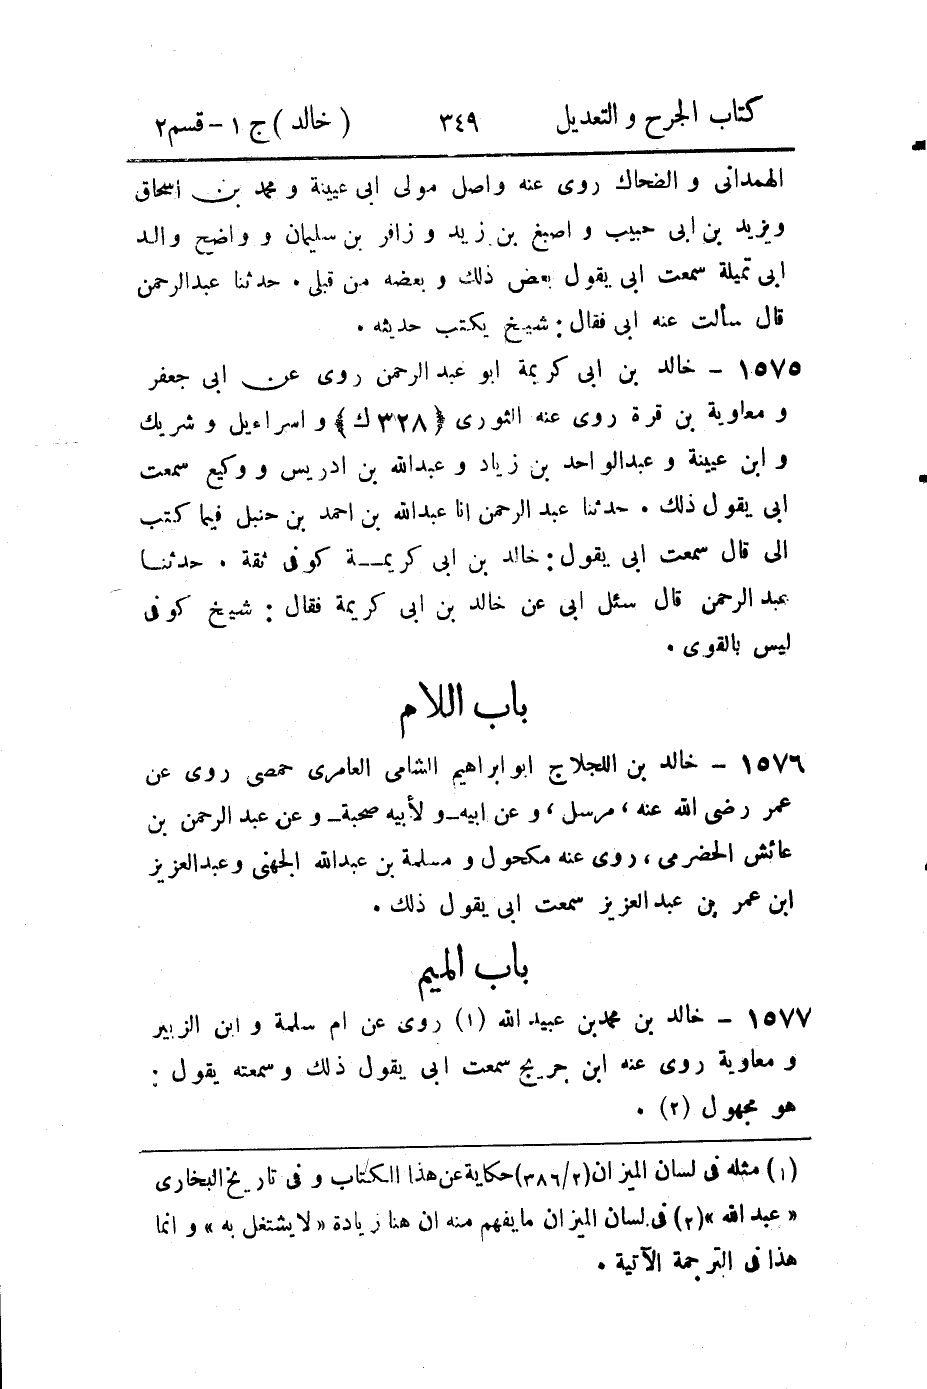 كتاب الجرح و التعديل ٣٤٩ ( خالد ) ج ١ - قسم ٢
الهمدانى و الضحاك روى عنه واصل مولى ابى عيينة و محمد بن اسحاق
ويزيد بن ابى حبيب و اصبغ بن زيد و زافر بن سليمان و واضح والد
ابى تميلة سمعت ابى يقول بعض ذلك و بعضه من قبلى . حدثنا عبدالرحمن
قال سألت عنه ابى فقال : شيخ يكتب حديثه .
١٥٧٥ - خالد بن ابى كريمة ابو عبد الرحمن روى عن ابى جعفر
و معاوية بن قرة روى عنه الثورى ﴿٣٢٨ ك﴾ و اسراءيل و شريك
و ابن عيينة و عبدالواحد بن زياد و عبدالله بن ادريس و وكيع سمعت
ابى يقول ذلك . حدثنا عبد الرحمن انا عبدالله بن احمد بن حنبل فيما كتب
الى قال سمعت ابى يقول : خالد بن ابى كريمـــة كوفى ثقة . حدثنــا
عبد الرحمن قال سئل ابى عن خالد بن ابى كريمة فقال : شيخ كوفى
ليس بالقوى .
باب اللام
١٥٧٦ - خالد بن اللجلاج ابو ابراهيم الشامى العامرى حمصى روى عن
عمر رضى الله عنه ، مرسل ، و عن ابيه - و لأبيه صحبة - و عن عبد الرحمن بن
عائش الحضرمى ، روى عنه مكحول و مسلمة بن عبدالله الجهنى وعبدالعزيز
ابن عمر بن عبد العزيز سمعت ابى يقول ذلك .
باب الميم
١٥٧٧ - خالد بن محمد بن عبيد الله (١) روى عن ام سلمة و ابن الزبير
و معاوية روى عنه ابن جريج سمعت ابى يقول ذلك و سمعته يقول :
هو مجهول (٢) .
(١) مثله فى لسان الميزان (٣٨٦/٢) حكاية عن هذا الكتاب و فى تاريخ البخارى
« عبد الله » (٢) فى لسان الميزان ما يفهم منه ان هنا زيادة « لا يشتغل به » و انما
هذا فى الترجمة الآتية .